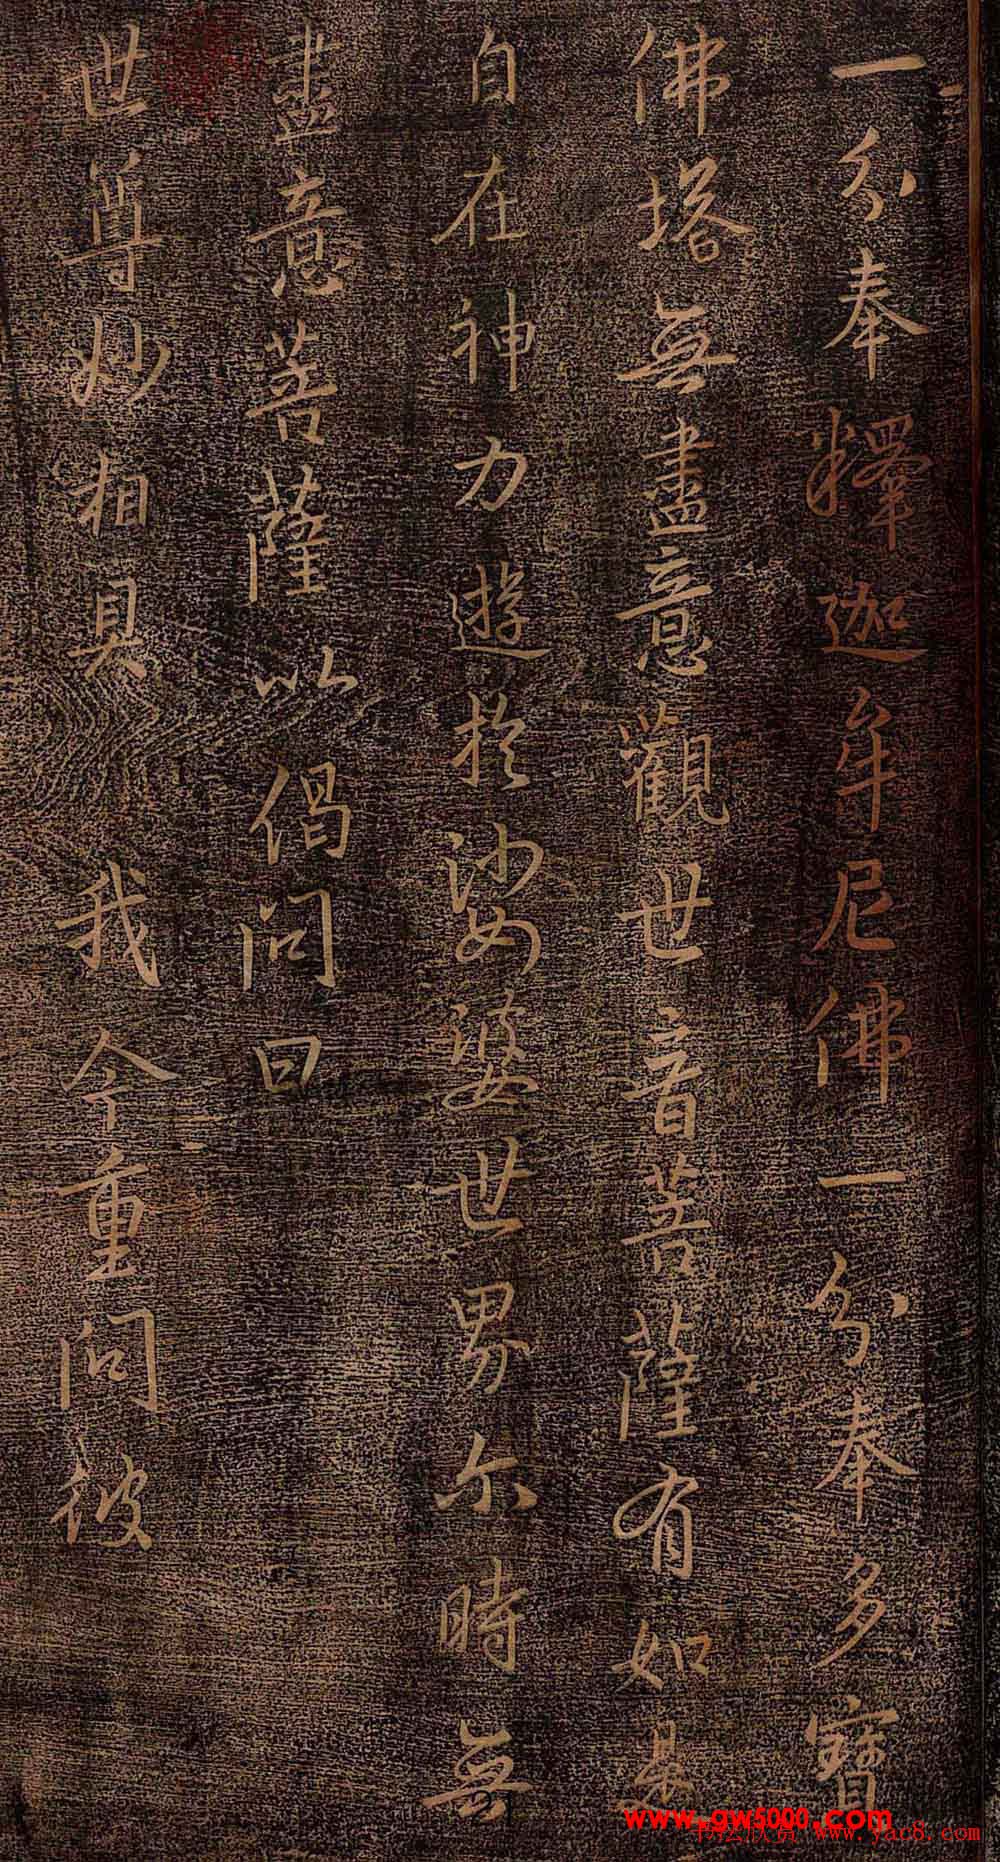 一分奉釋迦牟尼佛一分奉多寶
佛塔無盡意觀世音菩薩有如是
自在神力遊於娑婆世界尒時無
盡意菩薩以偈問曰
世尊妙相具 我今重問彼
www.gw5000.com
书法欣赏 www.yac8.com